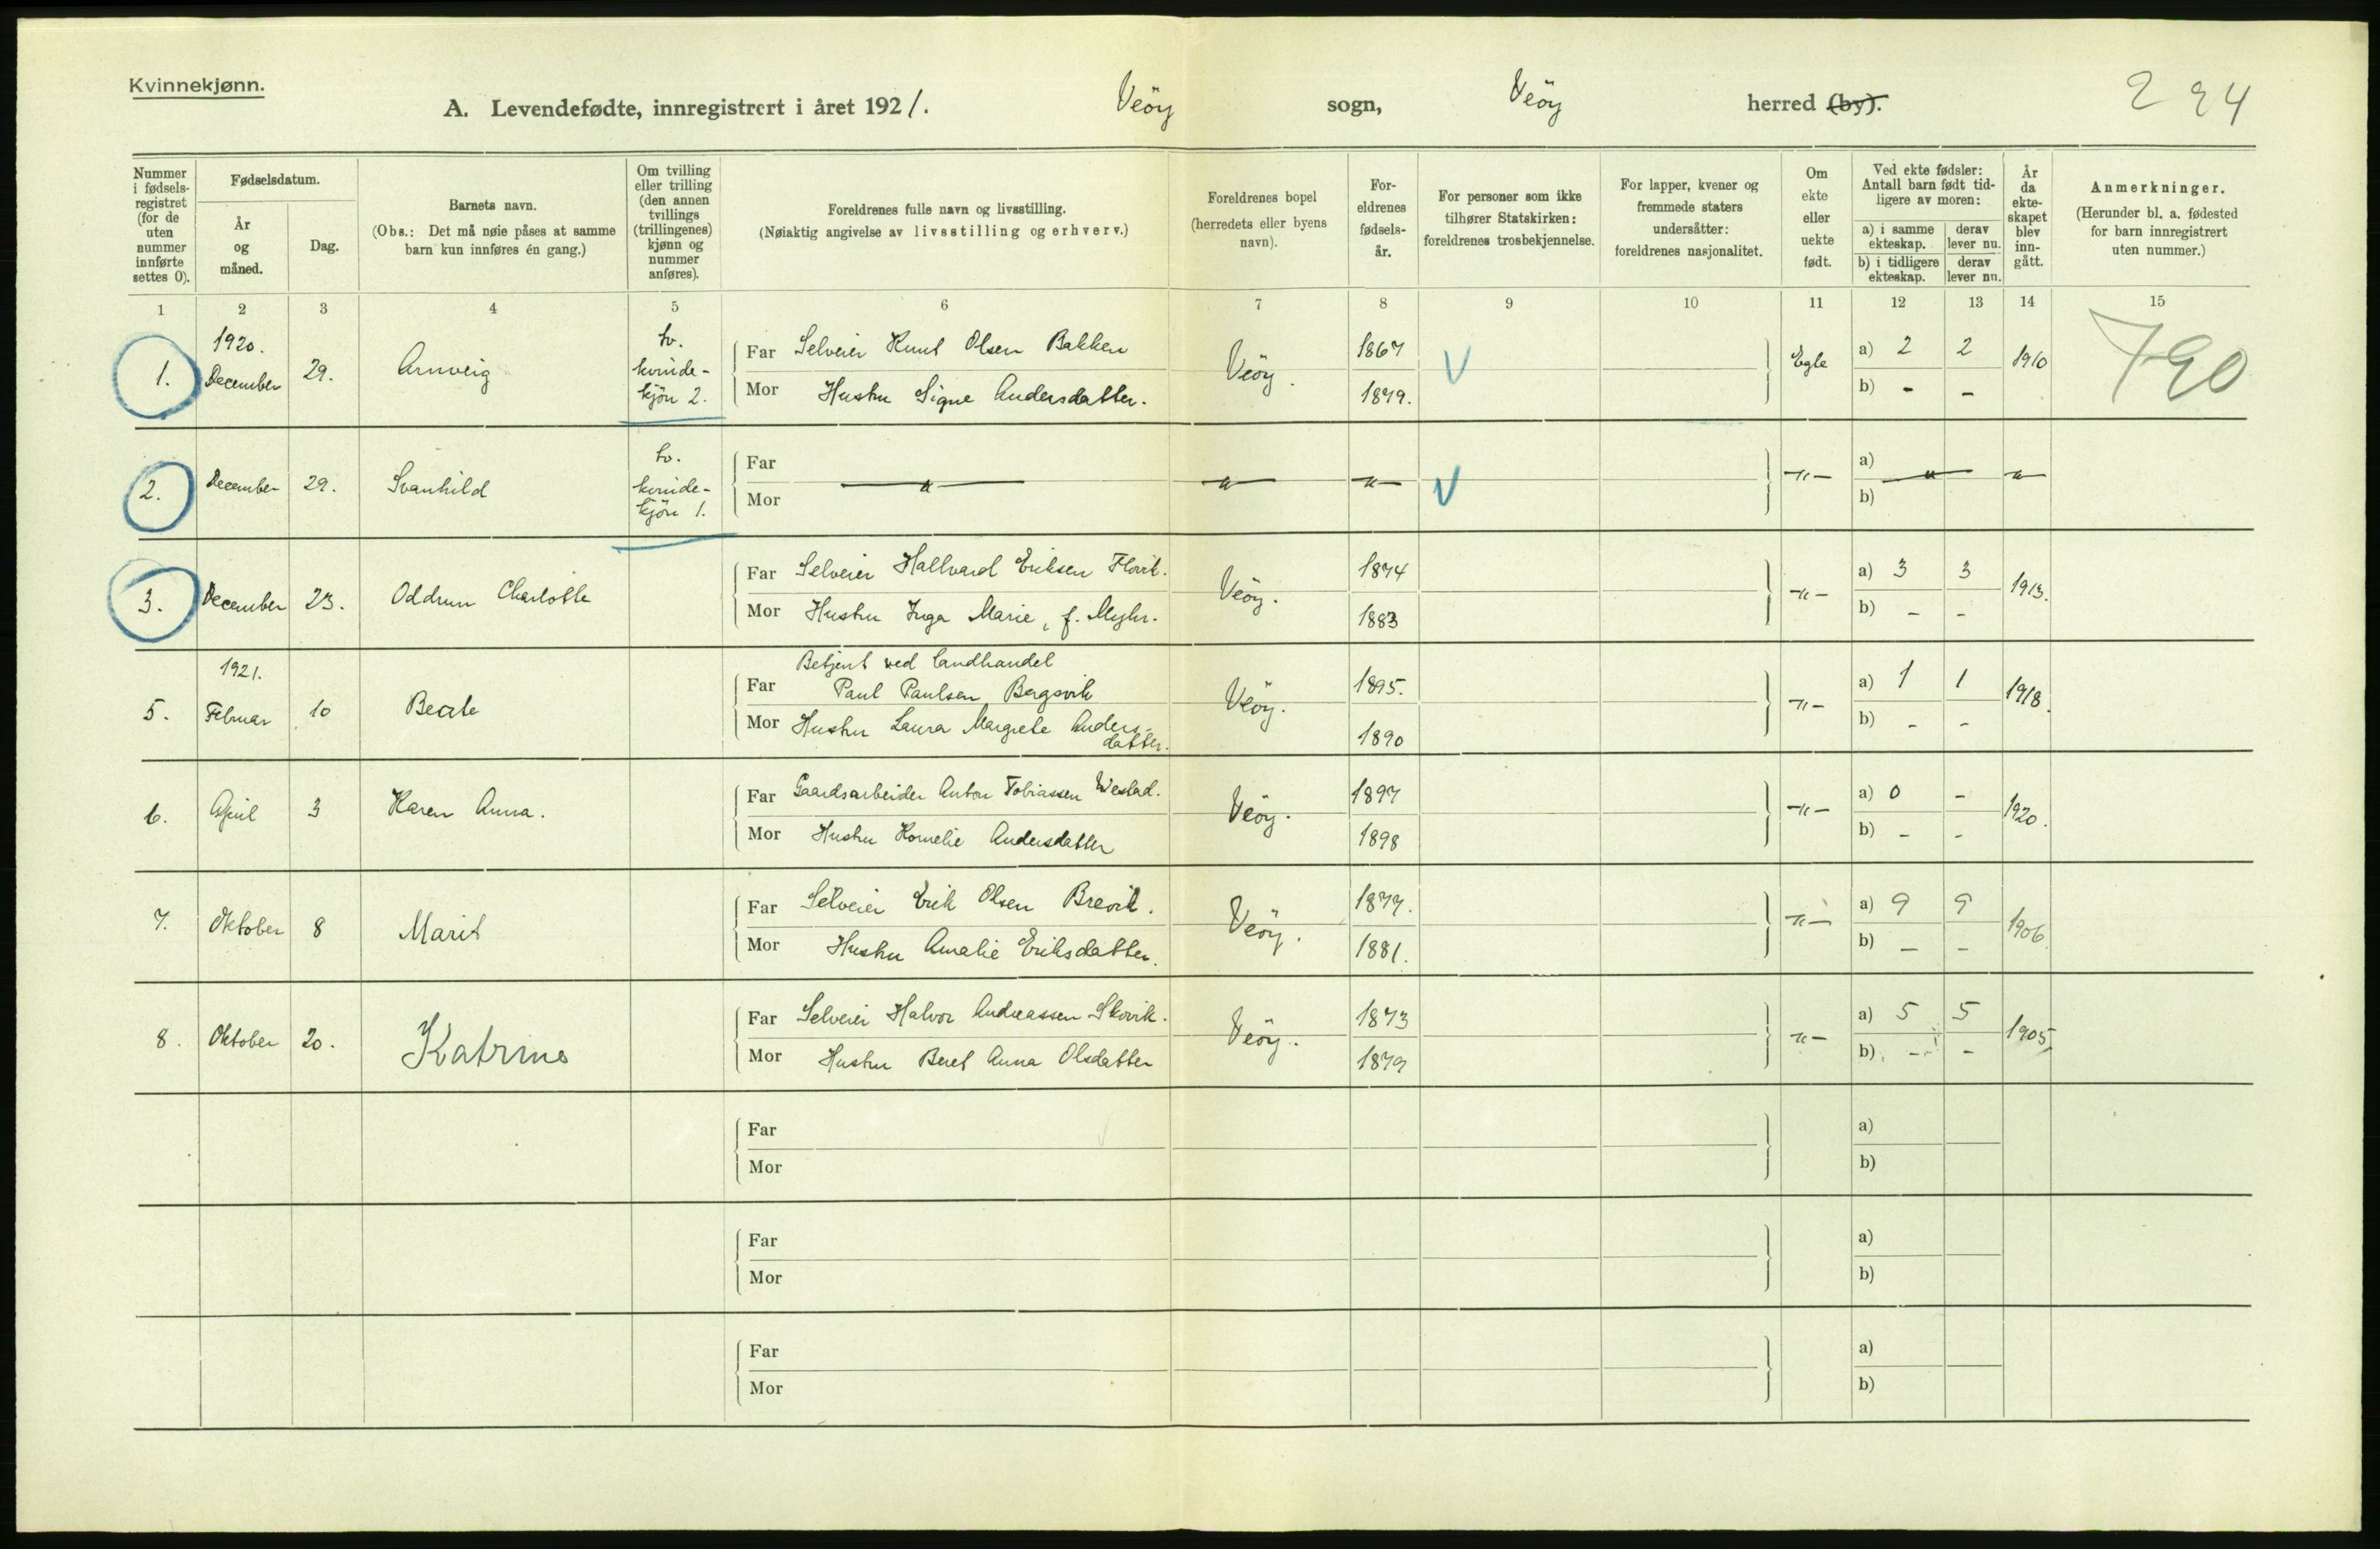 Kvinnekjønn.
A. Levendefødte, innregistrert i året 1921. Veöy sogn, Veöy herred (by). 2 24
Nummer i fødsels-registret (for de uten nummer innførte settes 0).
Fødselsdatum.
År og måned.
Dag.
Barnets navn.
(Obs.: Det må nøie påses at samme barn kun innføres én gang.)
Om tvilling eller trilling (den annen tvillings (trillingenes) kjønn og nummer anføres).
Foreldrenes fulle navn og livsstilling.
(Nøiaktig angivelse av livsstilling og erhverv.)
Foreldrenes bopel
(herredets eller byens navn).
For-eldrenes fødsels-år.
For personer som ikke tilhører Statskirken: foreldrenes trosbekjennelse.
For lapper, kvener og fremmede staters undersåtter: foreldrenes nasjonalitet.
Om ekte eller uekte født.
Ved ekte fødsler: Antall barn født tid-ligere av moren:
a) i samme ekteskap.
derav lever nu.
b) i tidligere ekteskap.
derav lever nu.
År da ekte-skapet blev inn-gått.
Anmerkninger.
(Herunder bl. a. fødested for barn innregistrert uten nummer.)
1 2 3 4 5 6 7 8 9 10 11 12 13 14 15
1. 1920. December 29. Arnveig tv. kvinde-kjön 2.
Far Selveier Knut Olsen Bakken Veöy. 1867 V Egte a) 2 2 1910 790
Mor Hustru Signe Andersdatter. 1879. b) - -
2. December 29. Svanhild tv. kvinde-kjön 1.
Far — " — — " — — " — V — " — a) — " — — " —
Mor b)
3. December 23. Oddrun Charlotte
Far Selveier Hallvard Eriksen Flovik. Veöy. 1874 — " — a) 3 3 1913.
Mor Hustru Inga Marie, f. Myhr. 1883 b) - -
5. 1921. Februar 10 Beate
Betjent ved landhandel
Far Paul Paulsen Bergsvik Veöy. 1895. — " — a) 1 1 1918.
Mor Hustru Laura Margrete Anders-datter. 1890 b) - -
6. April 3 Karen Anna.
Far Gaardsarbeider Anton Tobiassen Westad. Veöy. 1897 — " — a) 0 - 1920.
Mor Hustru Kornelie Andersdatter 1898 b) - -
7. Oktober 8 Marit
Far Selveier Erik Olsen Brevik. Veöy. 1877. — " — a) 9 9 1906
Mor Hustru Amalie Eriksdatter. 1881. b) - -
8. Oktober 20. Katrine
Far Selveier Halvor Andreassen Skovik. Veöy. 1873 — " — a) 5 5 1905
Mor Hustru Beret Anna Olsdatter 1879 b) - -
Far a)
Mor b)
Far a)
Mor b)
Far a)
Mor b)